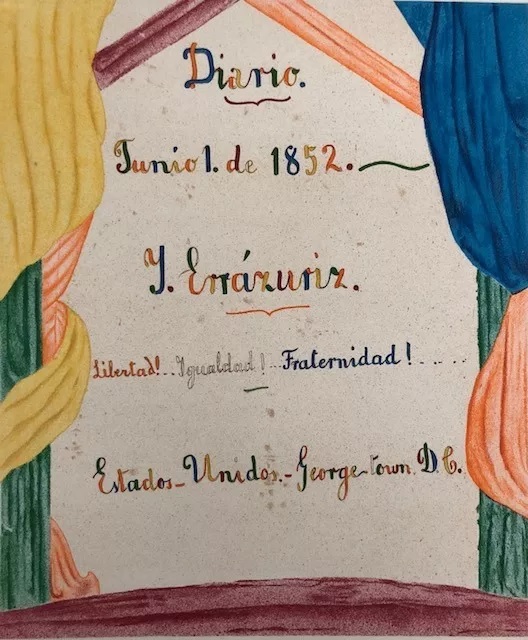 Diario.
Junio 1. de 1852.
Y. Errázuriz.
Libertad!... Igualdad!... Fraternidad!.....
Estados-Unidos.-George-town. D. C.